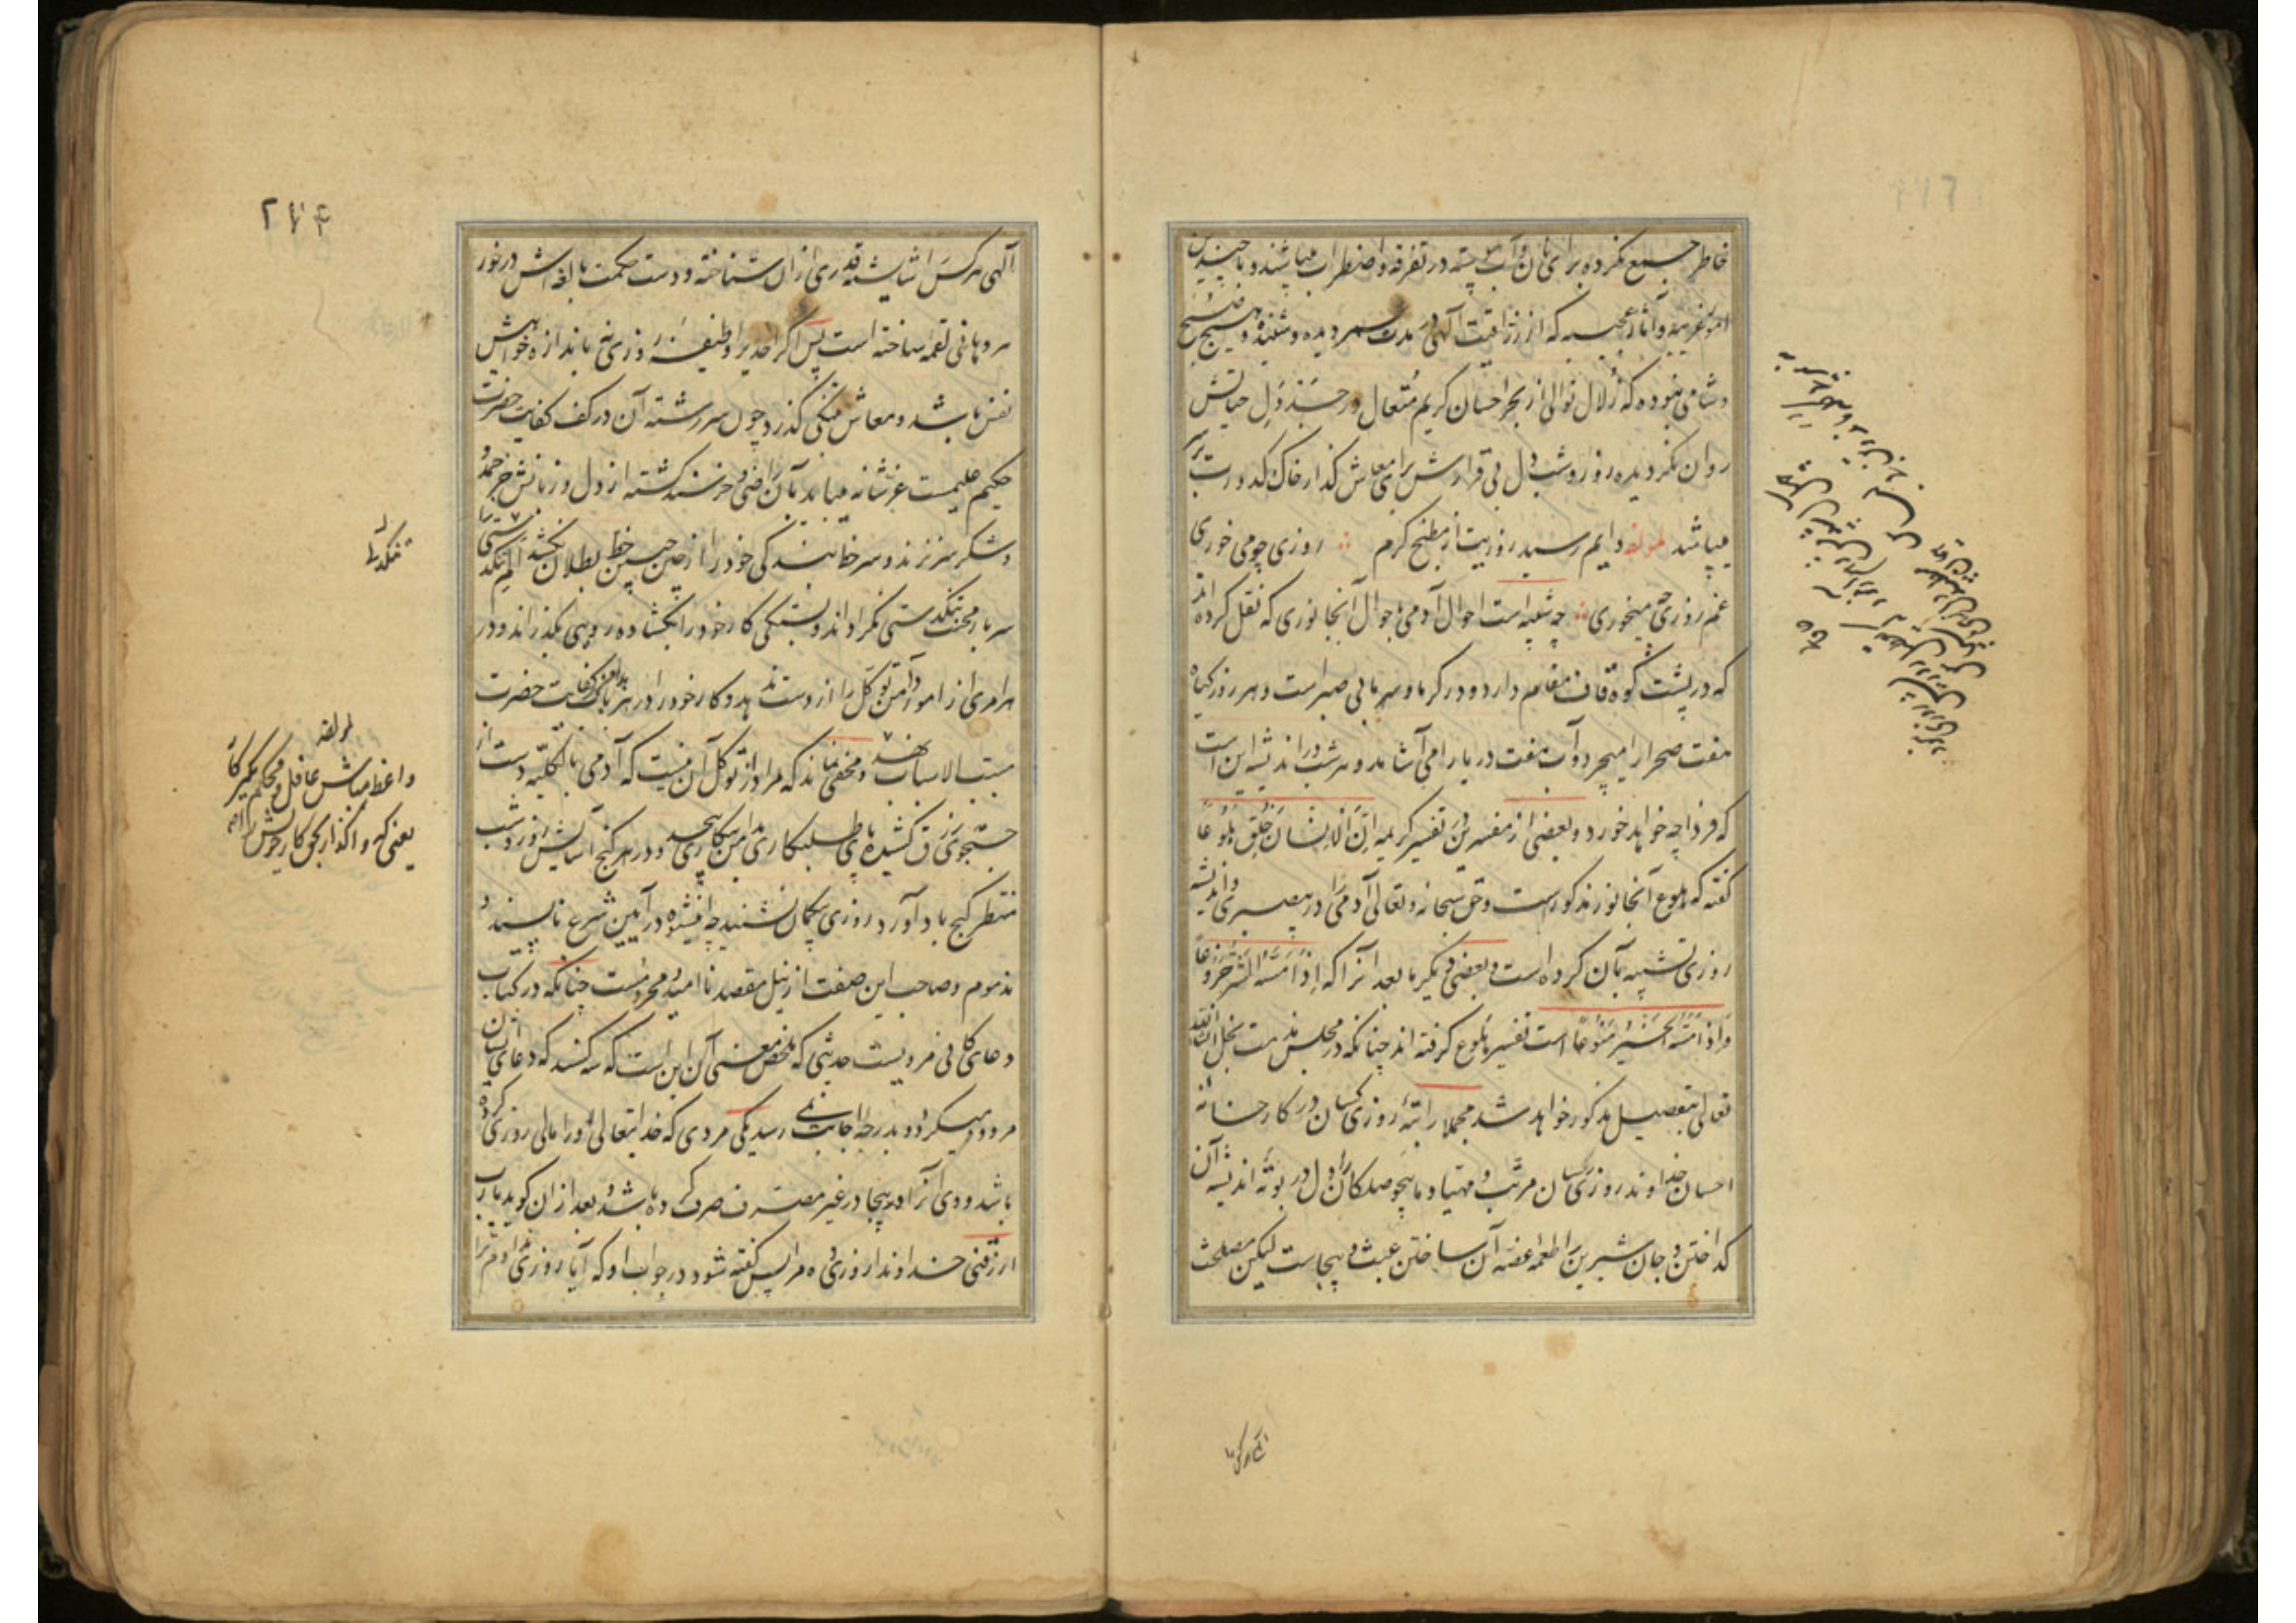 خاطر جمع نکرده برای نان و آب پیوسته در تفرقه و اضطراب میباشند و با چندین
امور غریبه و آثار عجیبه که از رزاقیت الهی در مدت عمر دیده و شنیده و هیچ صبح
و شامی نبوده که زلال نوالی از بحر احسان کریم متعال در جدول حیاتش
روان نکردیده روز و شب دل بی قرارش برای معاش کذار خاک کدورت بر سر
میباشد لمؤلفه دایم رسید روزیت از مطبخ کرم روزی چو می خوری
غم روزی چه میخوری چه شبیه است احوال آدمی باحوال آنجانوری که نقل کرده اند
که در پشت کوه قاف مقام دارد و در کرما و سرما بی صبر است و هر روز کیاه
هفت صحرا را میچرد و آب هفت دریا را می آشامد و هر شب در اندیشه این است
که فردا چه خواهد خورد و بعضی از مفسرین در تفسیر کریمه اِنَّ الْاِنْسَانَ خُلِقَ هَلُوعًا
کفته که هلوع آنجانور مذکور است و حق سبحانه و تعالی آدمی را در بیصبری و اندیشه
روزی تشبیه بآن کرده است و بعضی دیکر ما بعد آنرا که اِذَا مَسَّهُ الشَّرُّ جَزُوعًا
وَاِذَا مَسَّهُ الْخَیْرُ مَنُوعًا است تفسیر هلوع کرفته اند چنانکه در مجلس مذمت بخل انشاء الله
تعالی بتفصیل مذکور خواهد شد مجملا راتبهٔ روزی کسان در کارخانهٔ
احسان خداوند روزی رسان مرتب و مهیا و ما بیحوصلکان را دل در بوتهٔ اندیشه آن
کداختن و جان شیرین را طعمه غصه آن ساختن عبث و بیجاست لیکن مصلحت
الهی هر کس را شایسته قدری از آن شناخته و دست حکمت بالغه اش در خور
هر دهانی لقمه ساخته است پس اکر احدیرا وظیفهٔ روزی نه باندازه خواهش
نفس باشد و معاش بتنکی کذرد چون سررشته آن در کف کفایت حضرت
حکیم علیمست عز شانه میباید بآن راضی و خرسند کشته از دل و زبانش جز حمد و
شکر سر نزند و سر خط بندکی خود را از چین جبین خط بطلان نکشد ایام تنکدستی را
سر بار محنت تنکدستی نکرداند و بستکی کار خود را بکشاده رویی بکذراند و در
هر امری از امور دامن توکل را از دست ندهد و کار خود را در هر باب بدامن کفایت حضرت
مسبب الاسباب نهد و مخفی نماند که مراد از توکل آن نیست که آدمی بالکلیه دست از
جستجوی رزق کشیده پای طلبکاری در دامن بیکاری پیچد و در کنج آسایش روز و شب
منتظر کنج بادآورد روزی بیکمان نشیند چه این شیوه در آیین شرع ناپسند و
مذموم و صاحب این صفت از نیل مقصد ناامید و محرومست چنانکه در کتاب
دعای کافی مرویست حدیثی که ملخص معنی آن این است که سه کسند که دعای ایشان
مردود میکردد و بدرجهٔ اجابت نمی رسد یکی مردی که خدایتعالی او را مالی روزی کرده
باشد و وی آنرا بیجا در غیر مصرف صرف کرده باشد و بعد از آن کوید یا رب
ارزقنی خداوندا روزی ده مرا پس کفته شود در جواب او که آیا روزی ندادم ترا
تنکدلی را
لمؤلفه
واعظ مباش غافل و محکم بکیر کار
یعنی که واکذار بحق کار خویش را